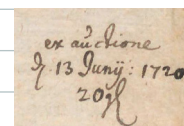 ex auctione
d. 13 Junij: 1720